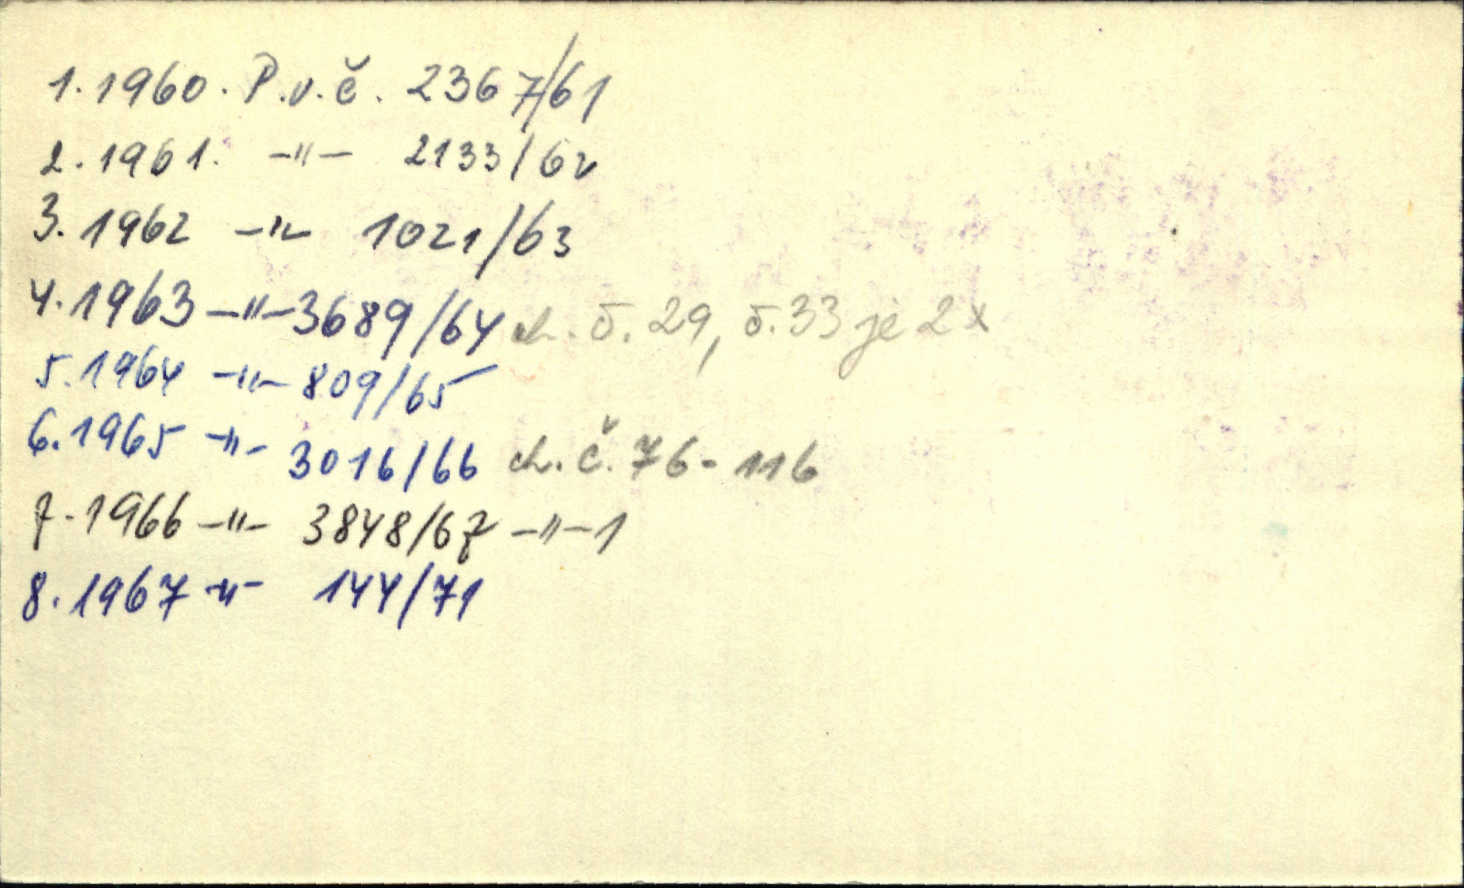 1. 1960. P.v.č. 2367/61
2. 1961. -"- 2133/62
3. 1962 -"- 1021/63
4. 1963 -"- 3689/64 ch. č. 29, č. 33 je 2x
5. 1964 -"- 809/65
6. 1965 -"- 3016/66 ch. č. 76-116
7. 1966 -"- 3848/67 -"- 1
8. 1967 -"- 144/71